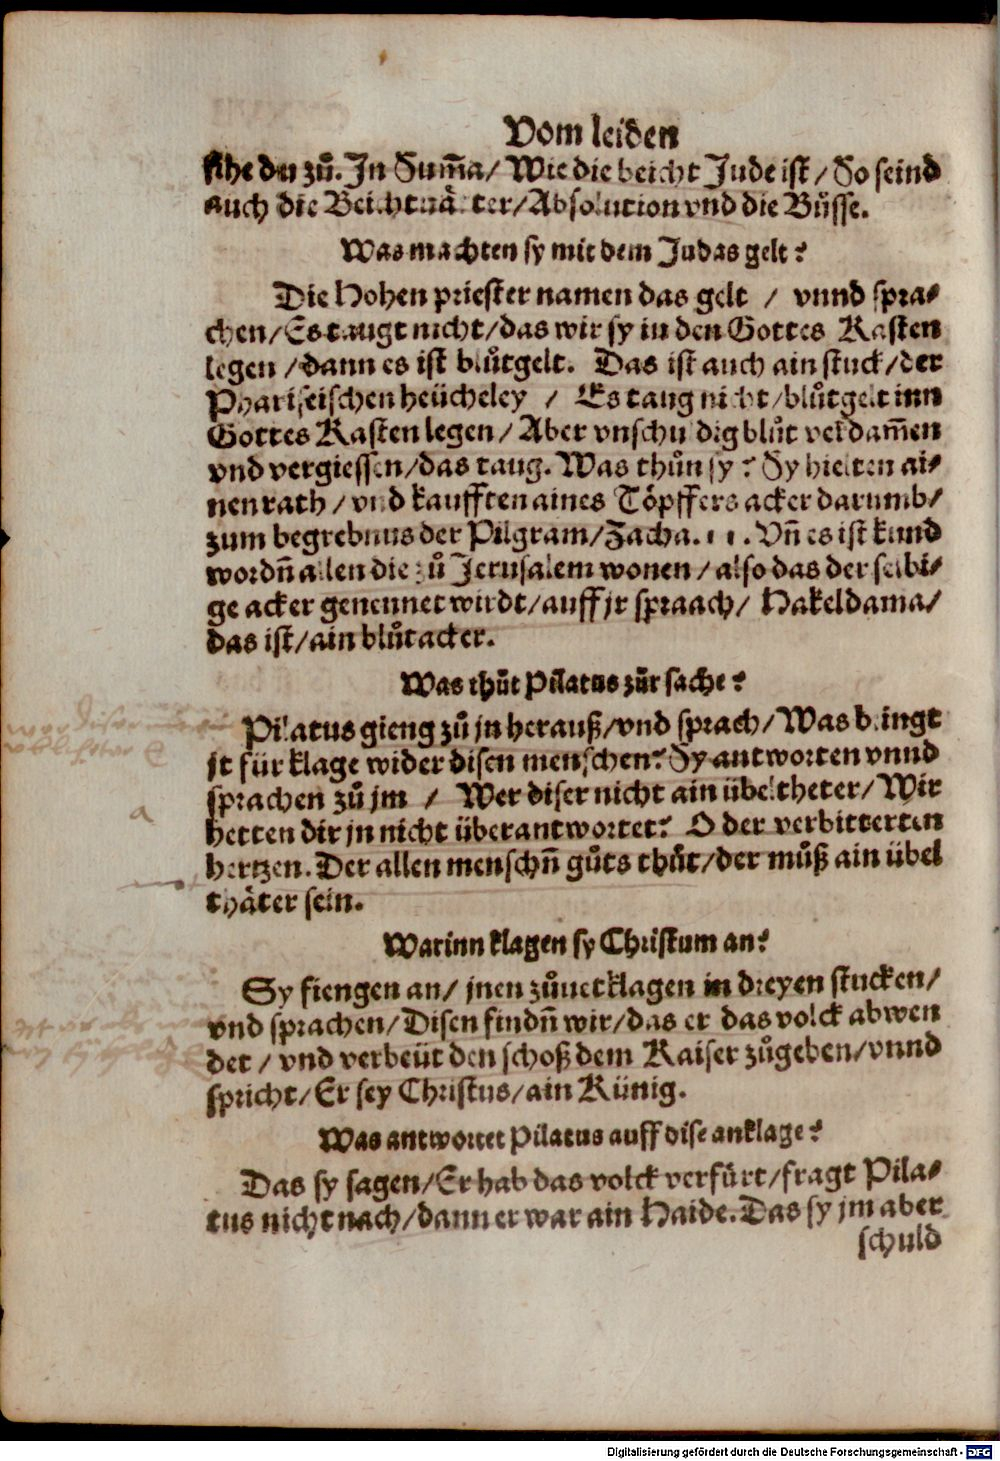 Vom leiden
sihe du zuͦ. In Sum̃a/ Wie die beicht Jude ist/ So seind
auch die Beichtuaͤtter/ Absolution vnd die Buͤsse.
Was machten sy mit dem Judas gelt?
Die Hohen priester namen das gelt / vnnd spra⸗
chen/ Es taugt nicht/ das wir sy in den Gottes Kasten
legen / dann es ist bluͦtgelt. Das ist auch ain stuck/ der
Phariseischen heücheley / Es taug nicht/ bluͦtgelt inn
Gottes Kasten legen/ Aber vnschuldig bluͦt verdam̃en
vnd vergiessen/ das taug. Was thuͦn sy? Sy hielten ai⸗
nen rath / vnd kaufften aines Toͤpffers acker darumb/
zum begrebnus der Pilgram/ Zacha. 11. Vñ es ist kund
wordñ allen die zuͦ Jerusalem wonen / also das der selbi⸗
ge acker genennet wirdt/ auff jr spraach/ Hakeldama/
das ist/ ain bluͦtacker.
Was thuͦt Pilatus zuͦr sache?
Pilatus gieng zuͦ jn herauß/ vnd sprach/ Was bringt
jr für klage wider disen menschen? Sy antworten vnnd
sprachen zuͦ jm / Wer diser nicht ain übeltheter/ Wir
hetten dir jn nicht überantwortet? O der verbitterten
hertzen. Der allen menschñ guͦts thuͦt/ der muͦß ain übel
thaͤter sein.
a
Warinn klagen sy Christum an?
Sy fiengen an/ jnen zuͦuerklagen in dreyen stucken/
vnd sprachen/ Disen findñ wir/ das er das volck abwen
det / vnd verbeüt den schoß dem Kaiser zuͦgeben/ vnnd
spricht/ Er sey Christus/ ain Künig.
Was antwortet Pilatus auff dise anklage?
Das sy sagen/ Er hab das volck verfürt/ fragt Pila⸗
tus nicht nach/ dann er war ain Haide. Das sy jm aber
schuld
Digitalisierung gefördert durch die Deutsche Forschungsgemeinschaft - DFG